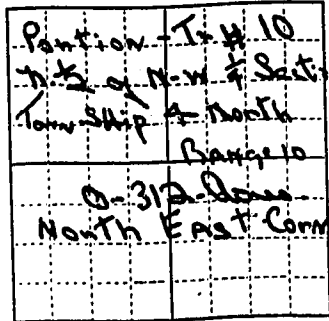 Portion - Tr # 10
N ½ of N-W ¼ Secti
Town Ship 4 North
Range 10
0-312-Acres
North East Corn